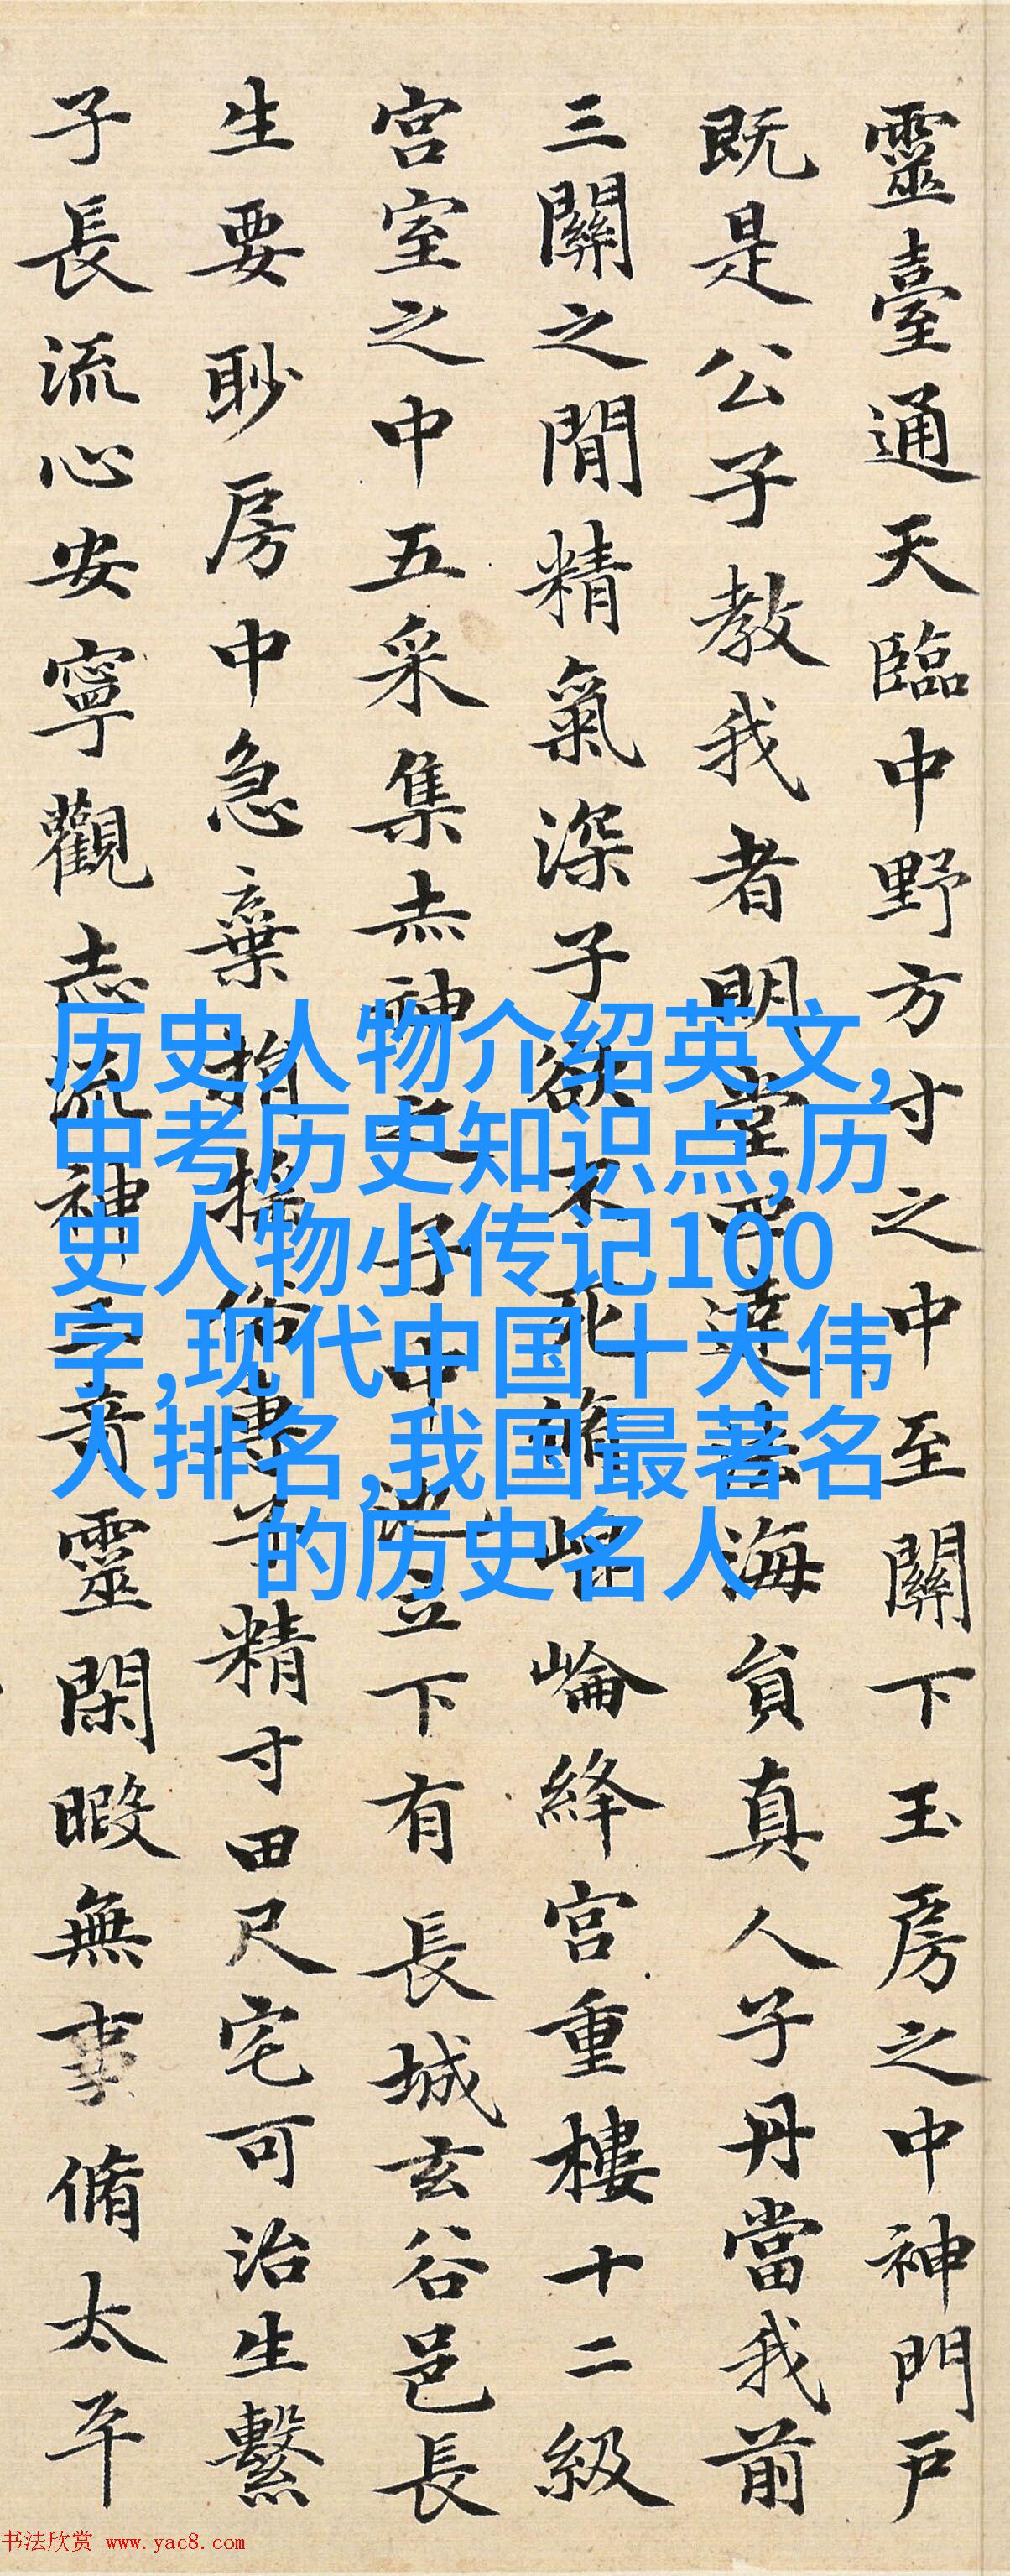 靈臺通天臨中野方寸之中至關下玉房之中神門戶
既是公子教我者明堂四達法海員真人子丹當我前
三關之閒精氣深子欲不死脩崐崘絳宮重樓十二級
宮室之中五采集赤神之子中池立下有長城玄谷邑長
生要眇房中急棄捐搖俗專子精寸田尺宅可治生繫
子長流心安寧觀志流神三奇靈閑暇無事脩太平
历史人物介绍英文,
中考历史知识点,历
史人物小传记100
字,现代中国十大伟
人排名,我国最著名
的历史名人
书法欣赏 www.yac8.com